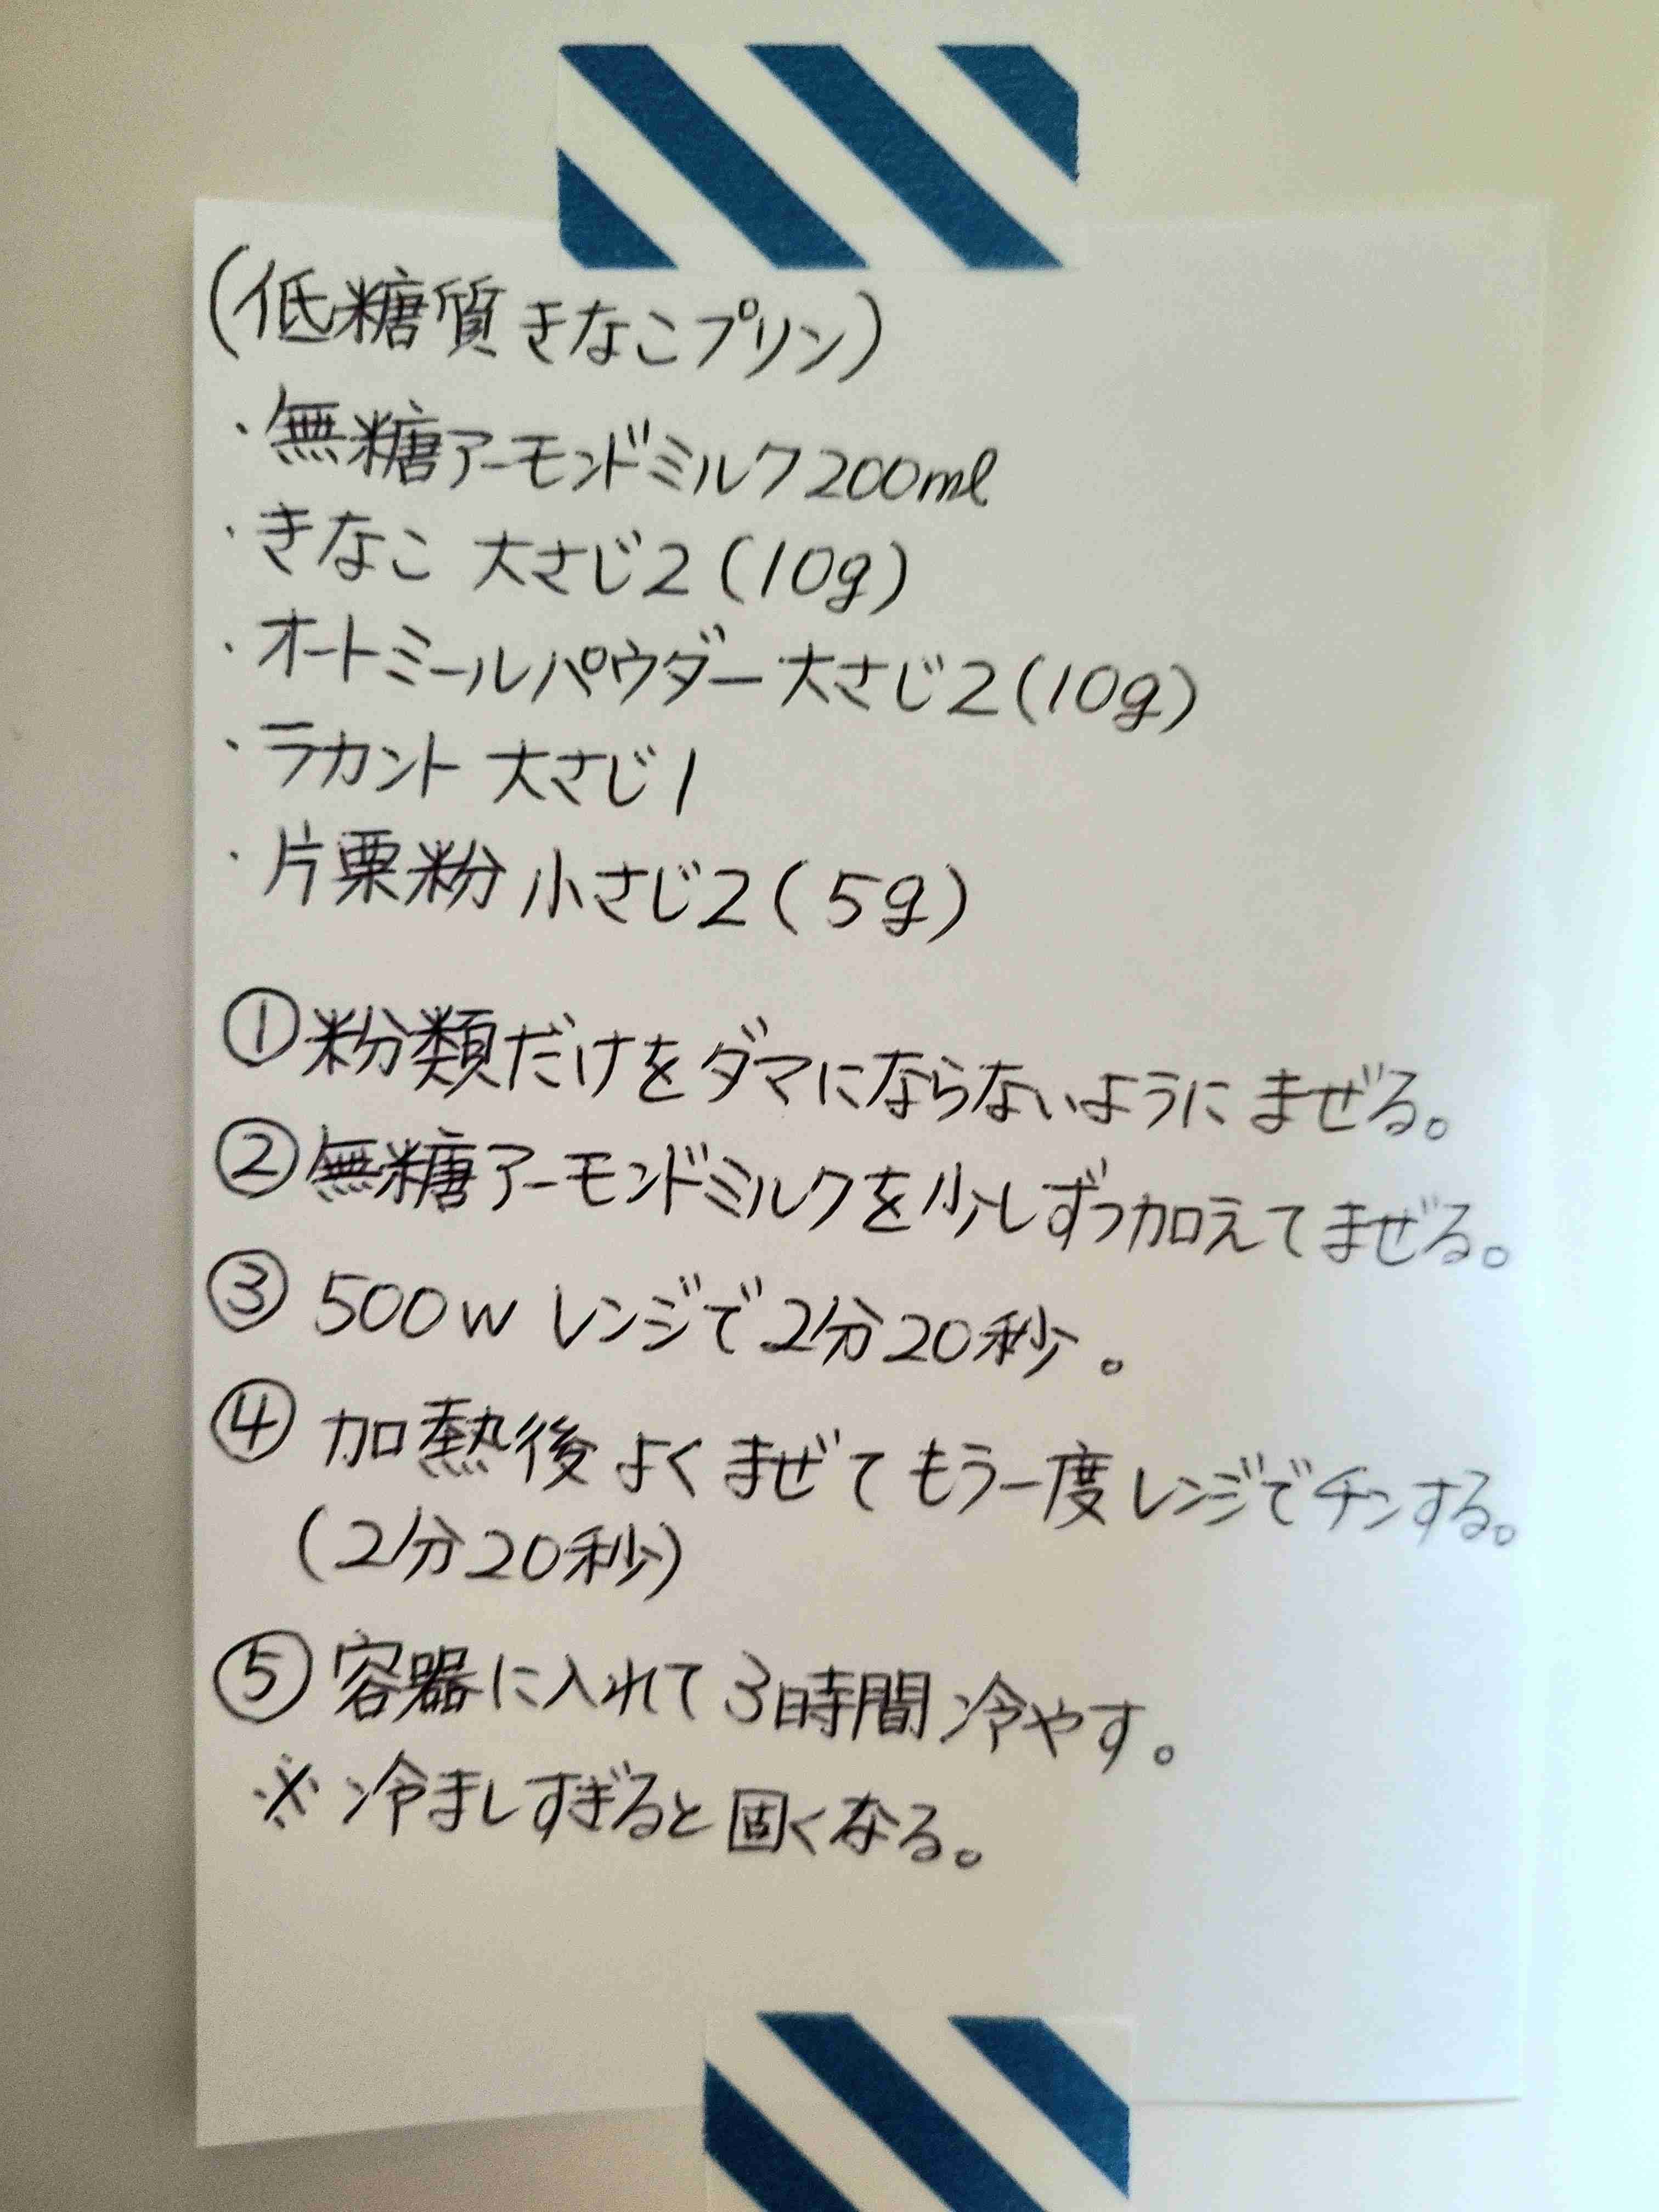 (低糖質きなこプリン)
・無糖アーモンドミルク200ml
・きなこ 大さじ2(10g)
・オートミールパウダー大さじ2(10g)
・ラカント 大さじ1
・片栗粉 小さじ2(5g)
①粉類だけをダマにならないようにまぜる。
②無糖アーモンドミルクを少しずつ加えてまぜる。
③500wレンジで2分20秒。
④加熱後よくまぜてもう一度レンジでチンする。
(2分20秒)
⑤容器に入れて3時間冷やす。
※冷ましすぎると固くなる。